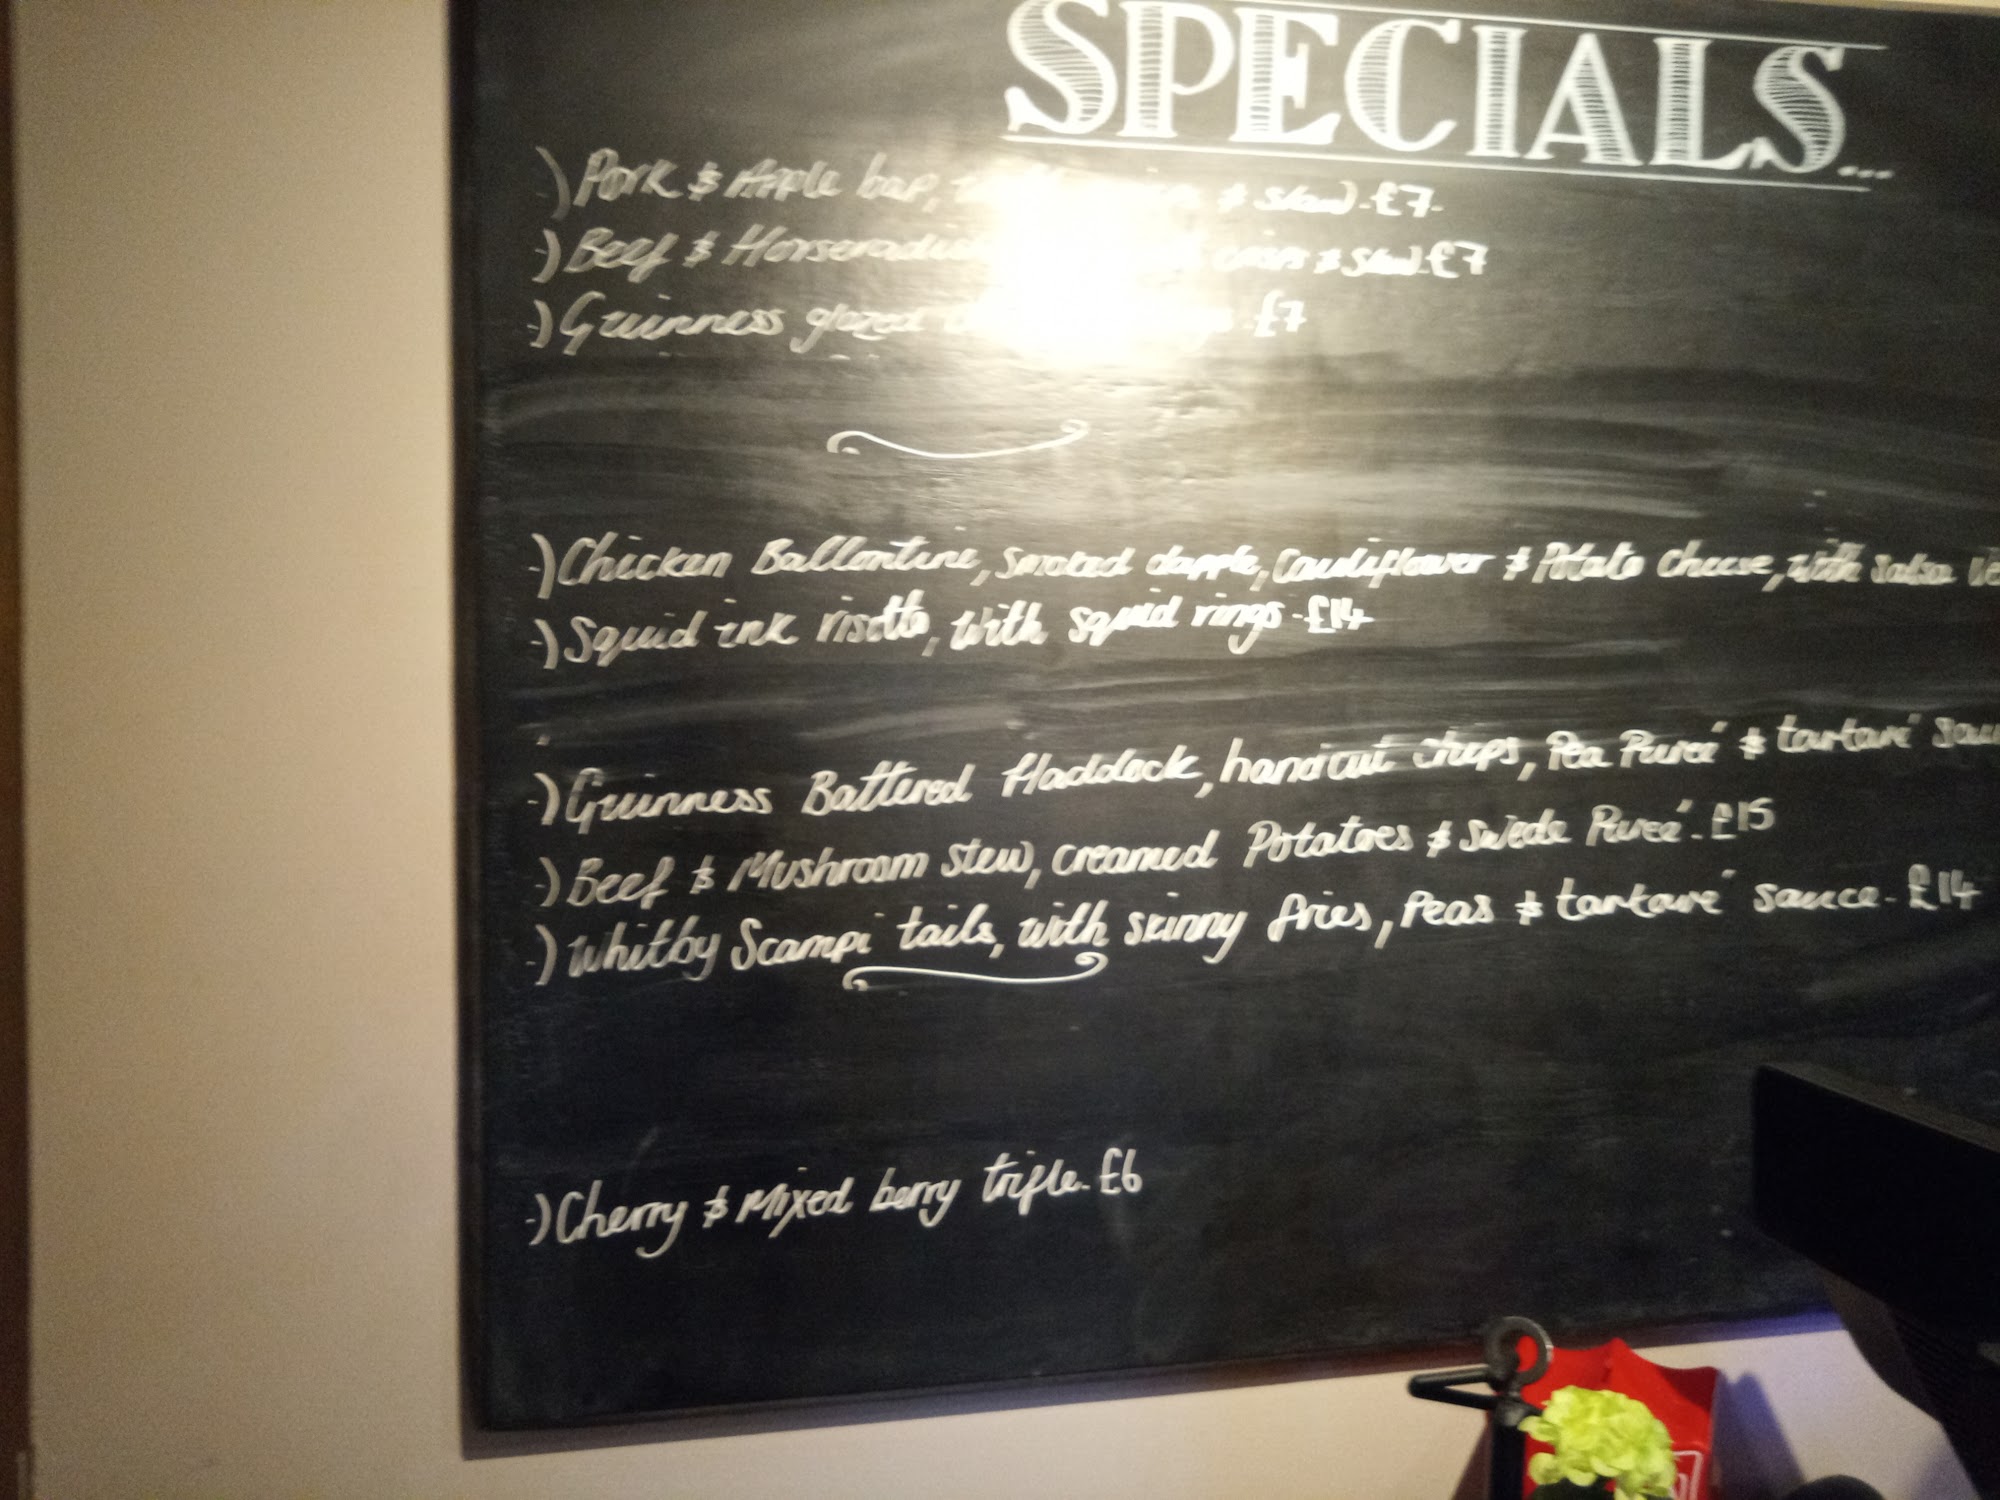 SPECIALS...
-) Pork & Apple bap, & slaw. £7.
-) Beef & Horseradish crisps & slaw. £7
-) Guinness glazed £7
-) Chicken Ballontine, smoked dapple, Cauliflower & Potato cheese, with salsa
-) Squid ink risotto, with squid rings. £14
-) Guinness Battered Haddock, handcut chips, Pea Pureé & tartaré
-) Beef & Mushroom stew, creamed Potatoes & Swede Pureé. £15
-) Whitby Scampi tails, with skinny fries, Peas & tartaré sauce. £14
-) Cherry & Mixed berry trifle. £6